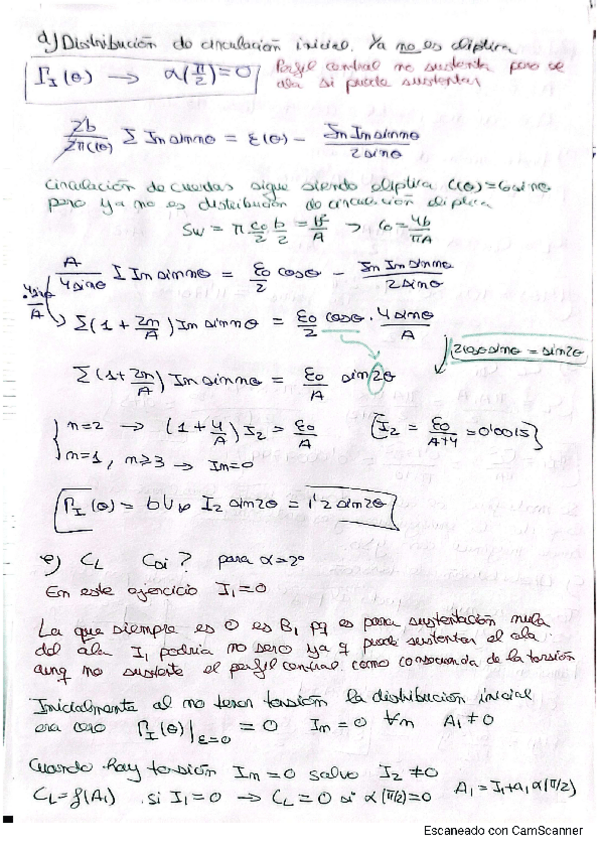 d) Distribución de circulación inicial. Ya no es elíptica
Γ_I(θ) → α(π/2)=0
Perfil central no sustenta pero el
ala si puede sustentar
2b/2πC(θ) Σ In sin nθ = ε(θ) − Σn In sin nθ/2 sin θ
Circulación de cuerdas sigue siendo elíptica C(θ)=Co sin θ
pero ya no es distribución de circulación elíptica
Sw = π Co/2 b/2 = b²/A → Co = 4b/πA
A/4sinθ Σ In sin nθ = ε0/2 cosθ − Σn In sin nθ/2 sin θ
·4sinθ/A
→ Σ(1 + 2n/A) In sin nθ = ε0/2 cosθ · 4 sinθ/A
2cosθ sinθ = sin2θ
Σ(1+2n/A) In sin nθ = ε0/A sin2θ
n=2 → (1+4/A) I2 = ε0/A
[I2 = ε0/A+4 = 0'0015}
n=1, n≥3 → In=0
Γ_I(θ) = bU∞ I2 sin2θ = 1'2 sin2θ
e) CL CDi? para α=2º
En este ejercicio I1=0
La que siempre es 0 es B1 pq es para sustentación nula
del ala I1 podría no sero ya q puede sustentar el ala
aunq no sustente el perfil central como consecuencia de la torsión
Inicialmente al no tener torsión la distribución inicial
era cero Γ_I(θ)|ε=0 = 0 In=0 ∀n A1≠0
Cuando hay torsión In=0 salvo I2≠0
CL=f(A1) si I1=0 → CL=0 si α(π/2)=0 A1=I1+a1α(π/2)
Escaneado con CamScanner